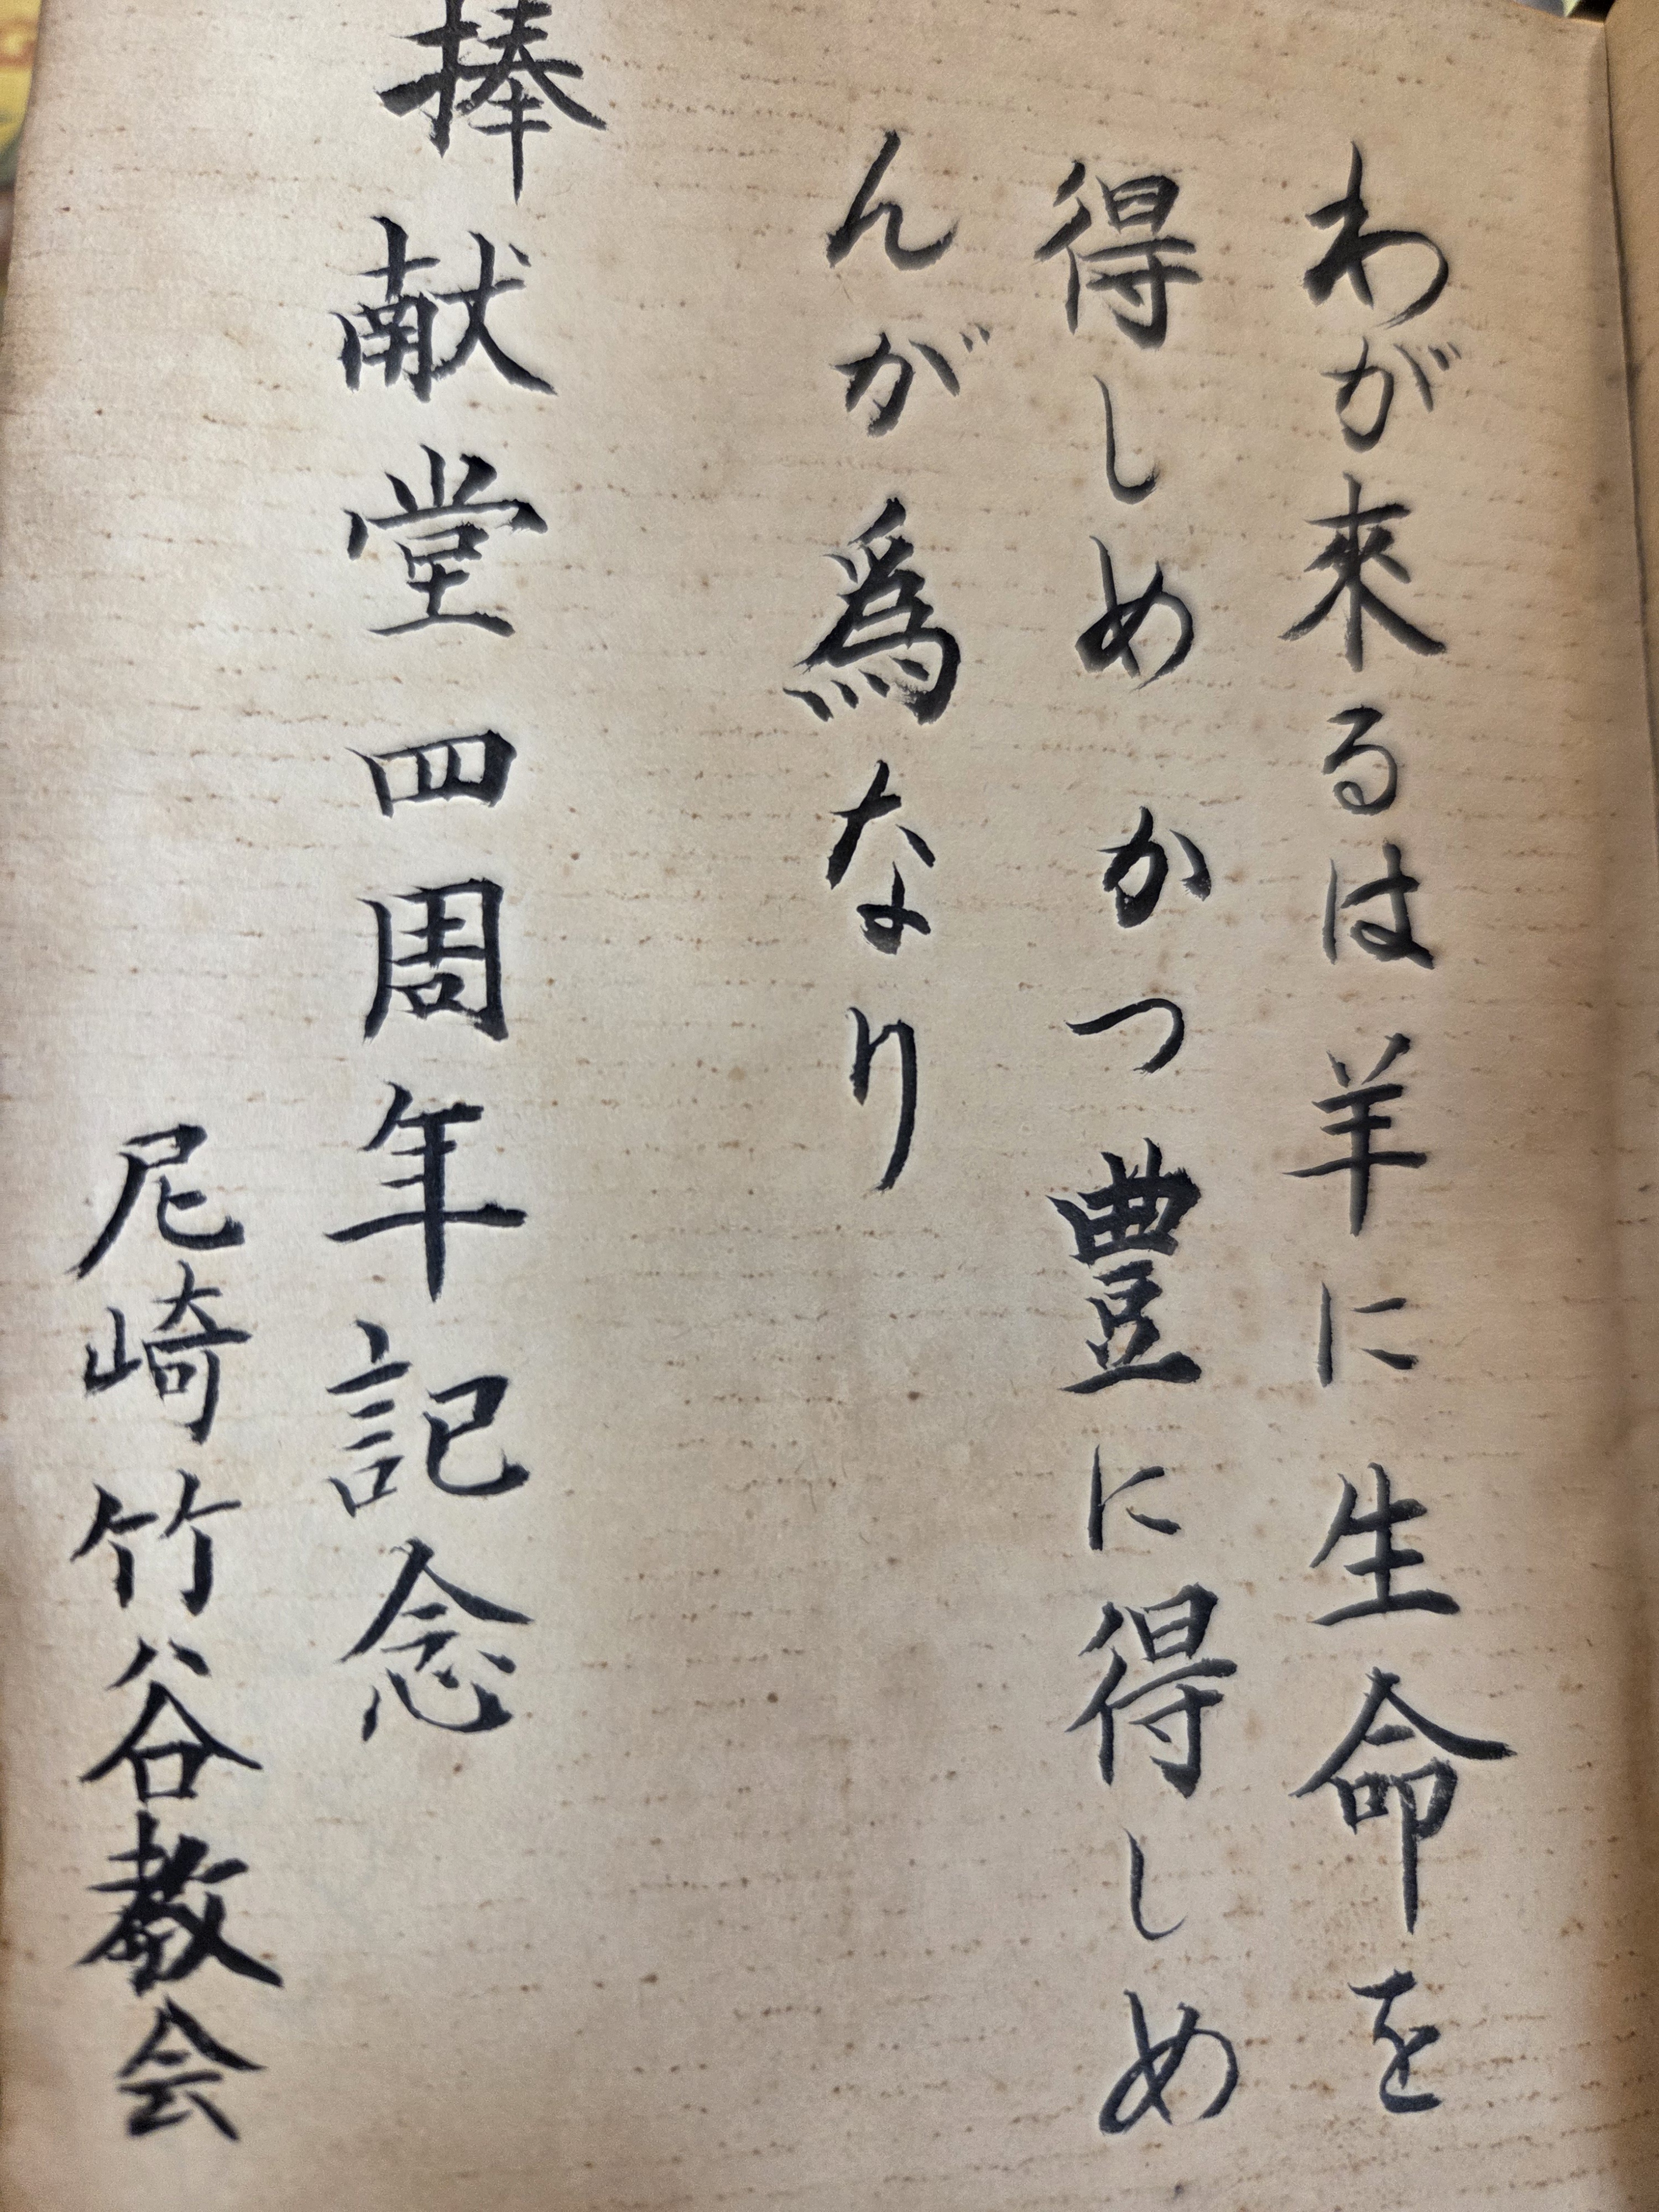 わが來るは羊に生命を
得しめかつ豊に得しめ
んが爲なり
捧献堂四周年記念
尼崎竹谷教会